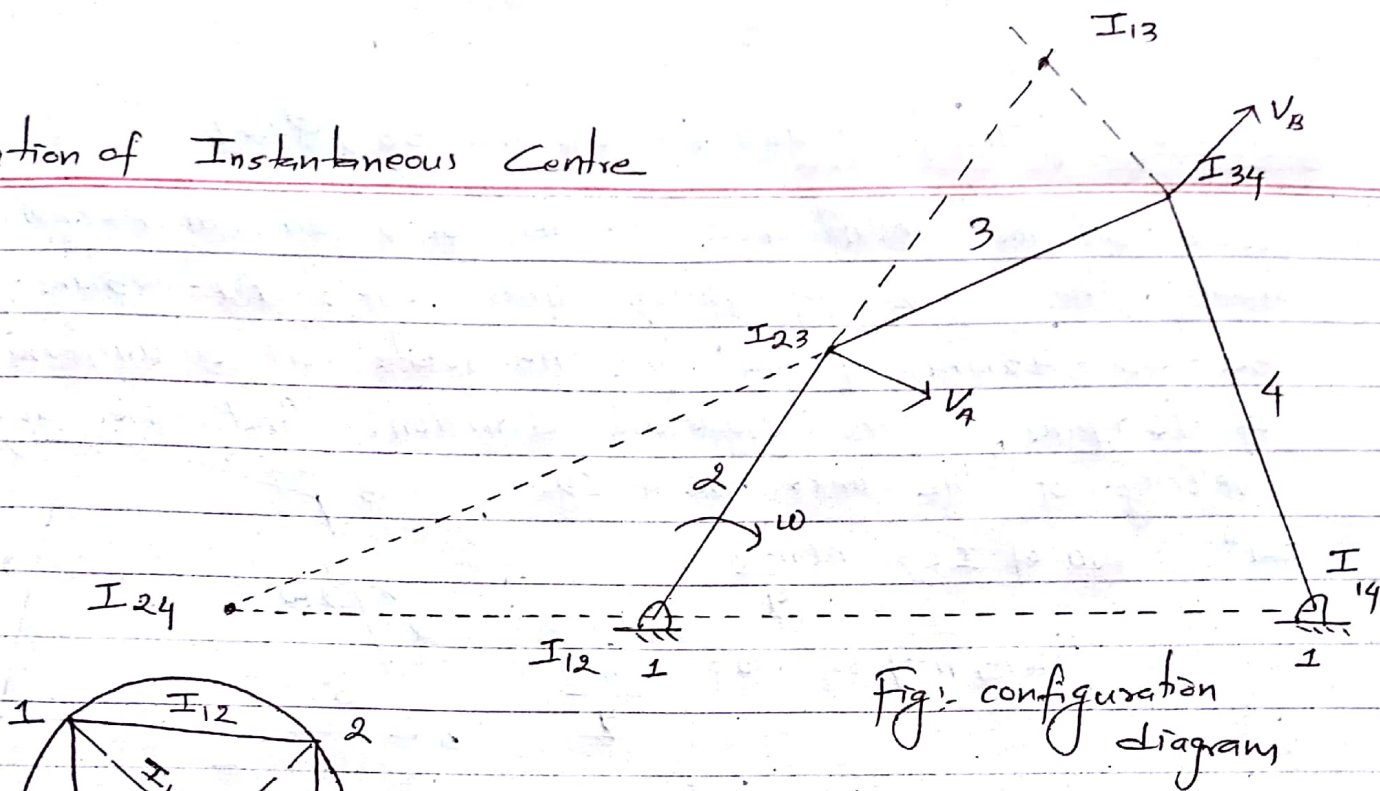 I13
VB
tion of Instantaneous Centre
I34
3
I23
VA
4
2
ω
I24
I14
I12 1
1
Fig:- configuration
diagram
1 I12 2